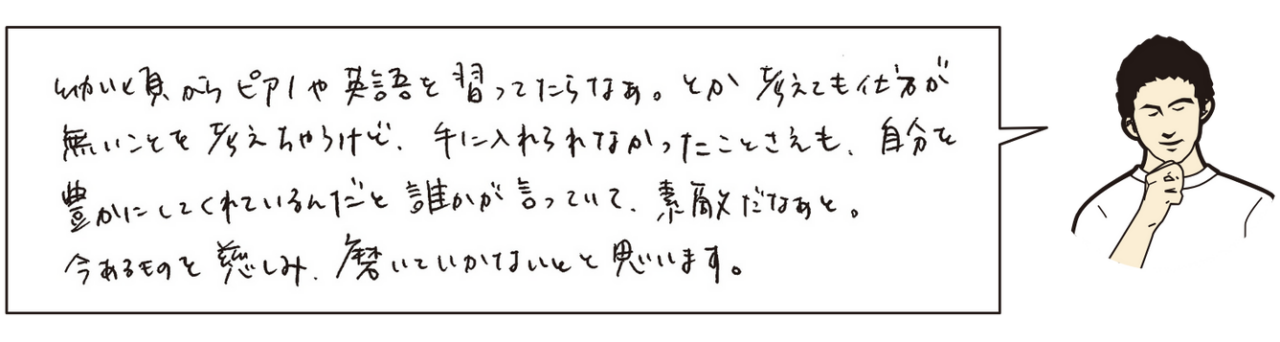 幼い頃からピアノや英語を習ってたらなぁ。とか考えても仕方が
無いことを考えちゃうけど、手に入れられなかったことさえも、自分を
豊かにしてくれているんだと誰かが言っていて、素敵だなぁと。
今あるものを慈しみ、磨いていかないとと思います。